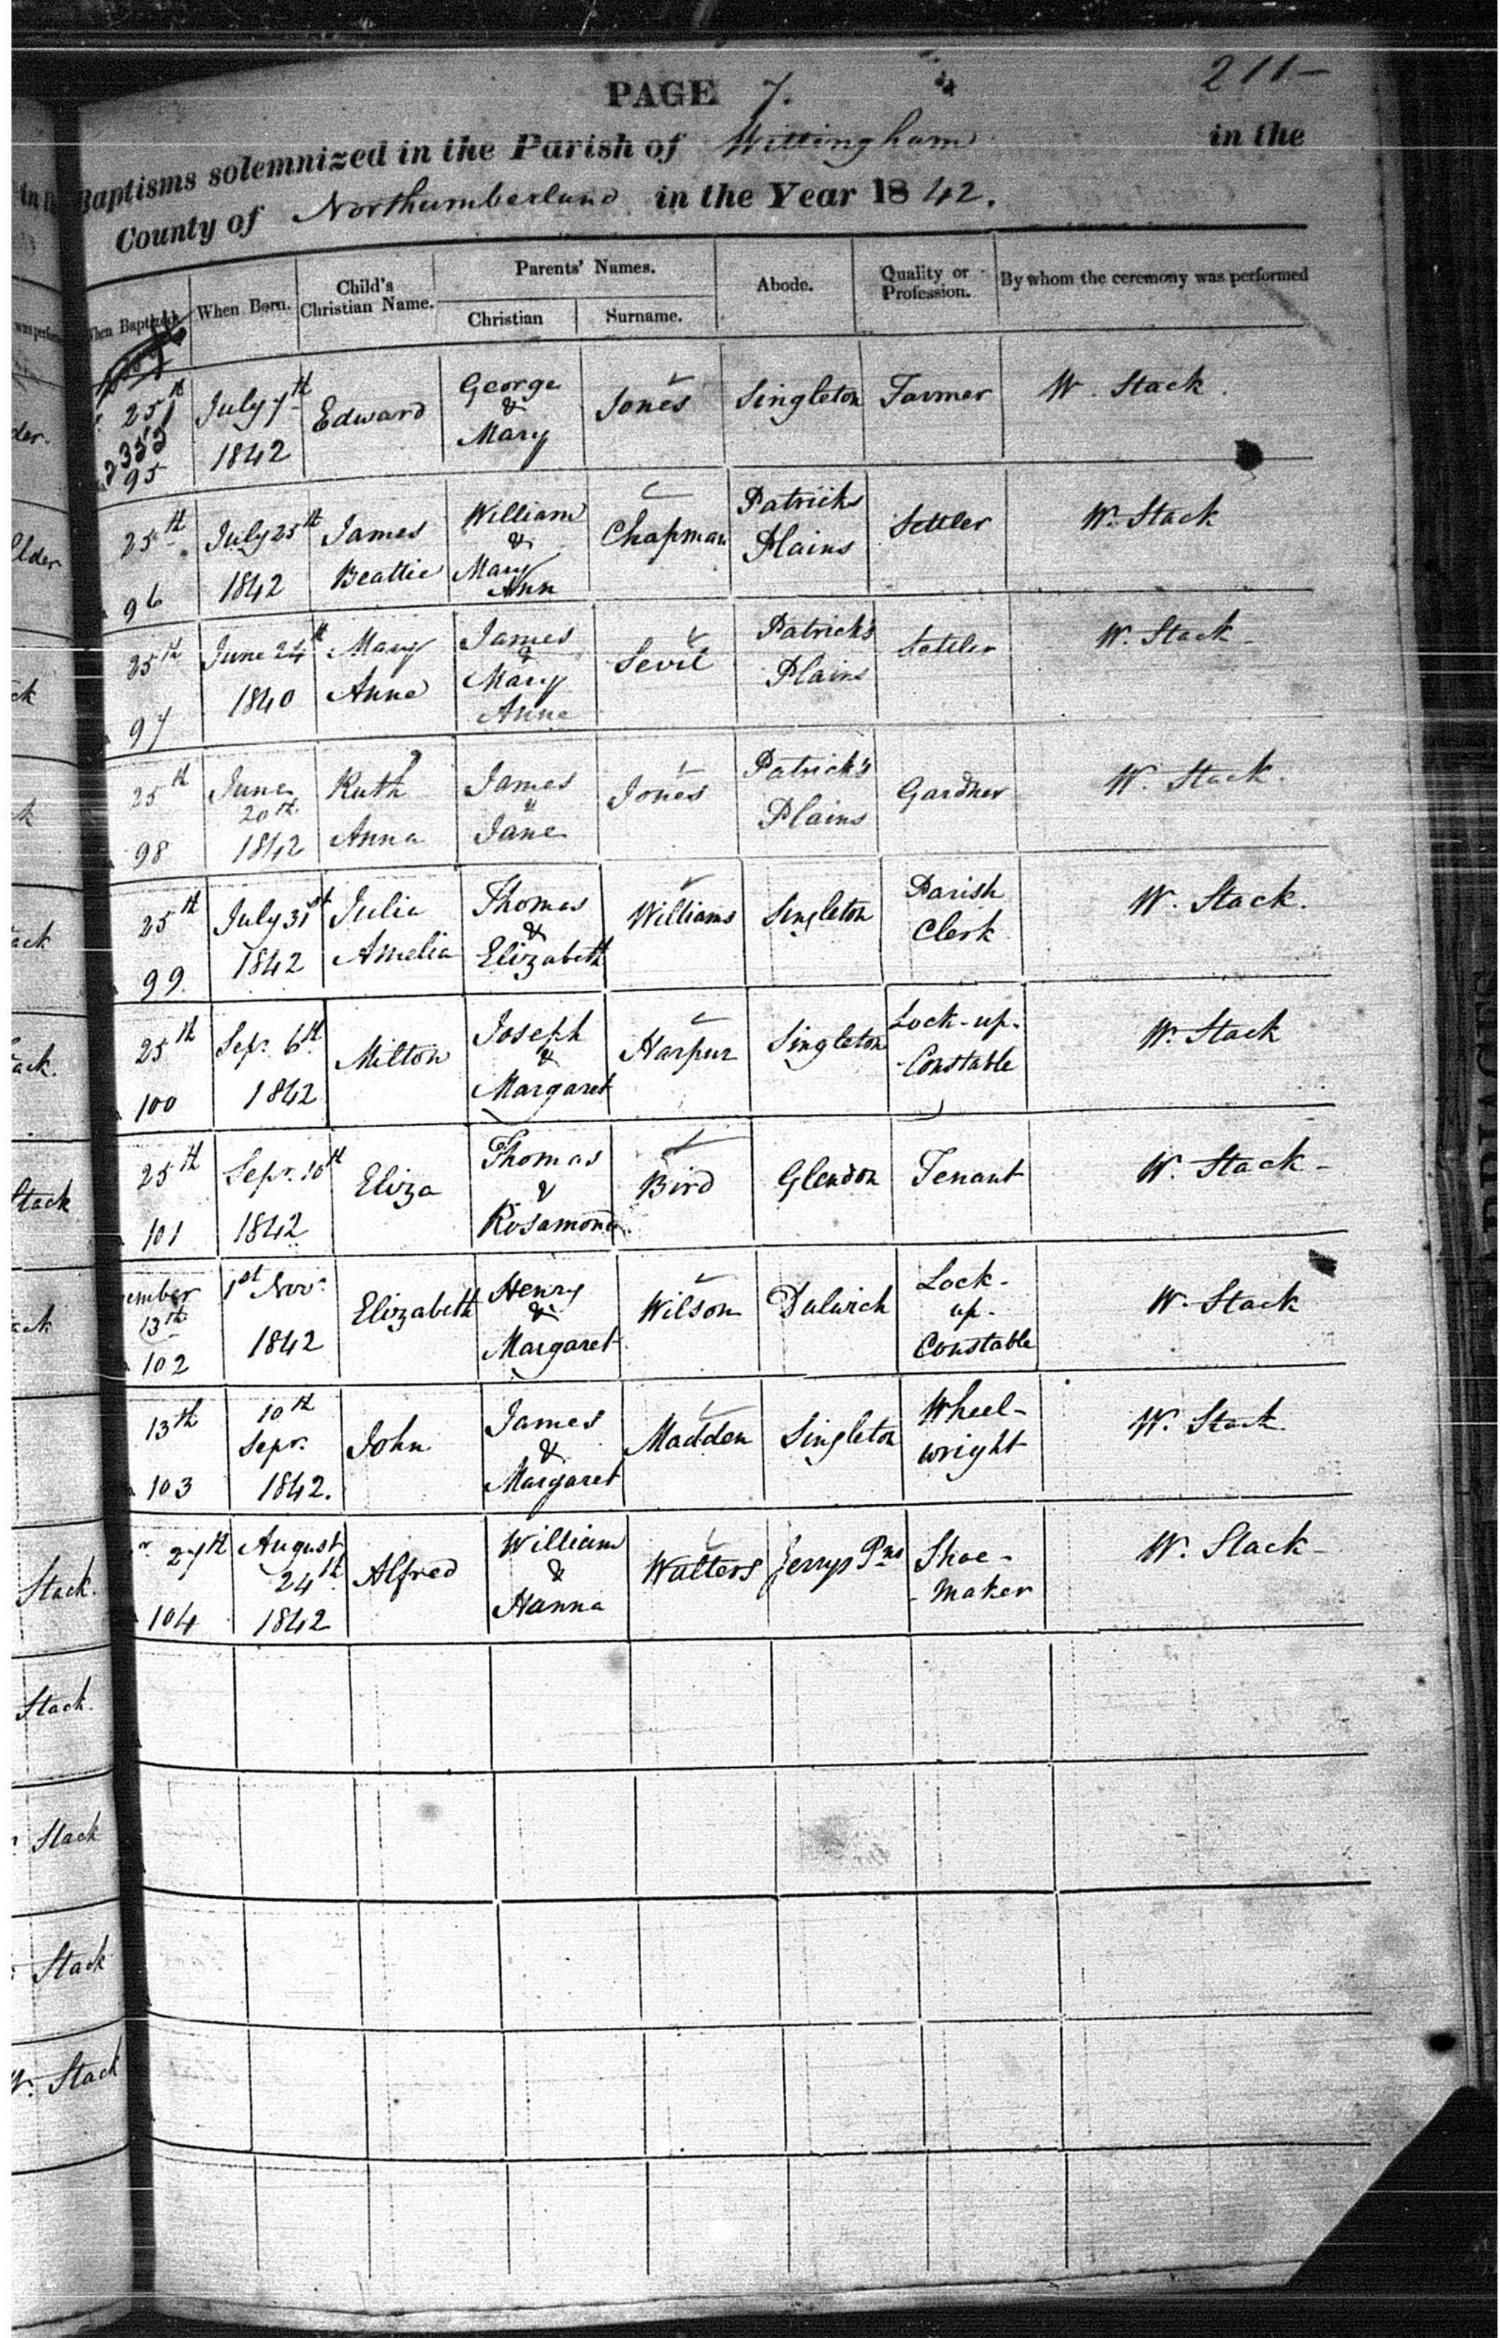 PAGE 7.
211-
Baptisms solemnized in the Parish of Wittingham in the
County of Northumberland in the Year 1842.
When Baptized. When Born. Child's Christian Name. Parents' Names. Christian Surname. Abode. Quality or Profession. By whom the ceremony was performed
25th July 7th 1842 Edward George & Mary Jones Singleton Farmer W. Stack.
95
25th July 25th 1842 James Beattie William & Mary Ann Chapman Patricks Plains Settler W. Stack
96
25th June 24th 1840 Mary Anne James & Mary Anne Sevil Patrick's Plains Settler W. Stack-
97
25th June 20th 1842 Ruth Anna James & Jane Jones Patrick's Plains Gardner W. Stack.
98
25th July 31st 1842 Julia Amelia Thomas & Elizabeth Williams Singleton Parish Clerk W. Stack.
99
25th Sepr. 6th 1842 Milton Joseph & Margaret Harpur Singleton Lock-up-Constable W. Stack
100
25th Sepr. 10th 1842 Eliza Thomas & Rosamond Bird Glendon Tenant W. Stack-
101
ember 13th 1st Novr. 1842 Elizabeth Henry & Margaret Wilson Dulwich Lock-up-Constable W. Stack
102
13th 10th Sepr. 1842. John James & Margaret Madden Singleton Wheel-wright W. Stack.
103
27th August 24th 1842 Alfred William & Hanna Walters Jerrys Pns Shoe-maker W. Stack-
104
der.
Elder
ck
k
ack
Stack.
Stack
ack
Stack.
Stack.
Stack
Stack
W. Stack